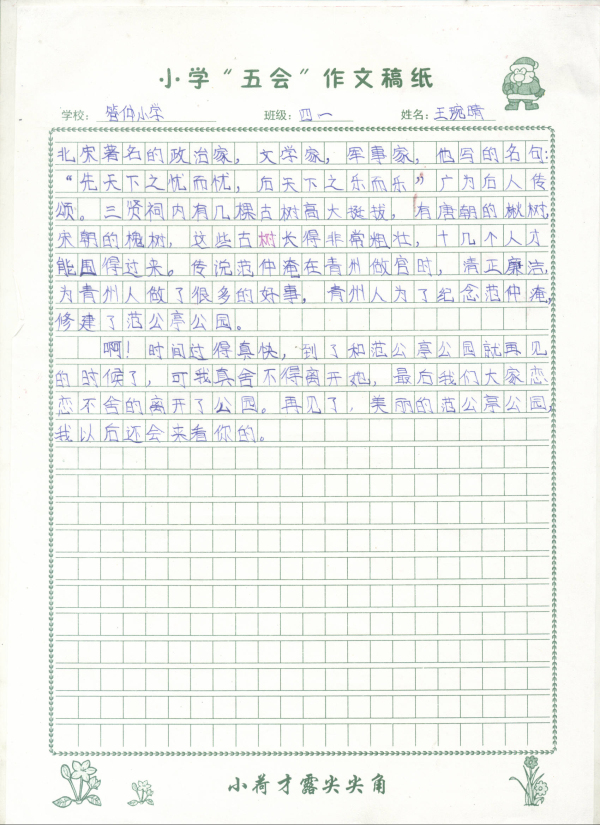 小学“五会”作文稿纸
学校：管仲小学 班级：四一 姓名：王琬晴
北宋著名的政治家，文学家，军事家，他写的名句：
“先天下之忧而忧，后天下之乐而乐”广为后人传
颂。三贤祠内有几棵古树高大挺拔，有唐朝的楸树，
宋朝的槐树，这些古树长得非常粗壮，十几个人才
能围得过来。传说范仲淹在青州做官时，清正廉洁，
为青州人做了很多的好事，青州人为了纪念范仲淹，
修建了范公亭公园。
啊！时间过得真快，到了和范公亭公园就再见
的时候了，可我真舍不得离开她，最后我们大家恋
恋不舍的离开了公园。再见了，美丽的范公亭公园，
我以后还会来看你的。
小荷才露尖尖角